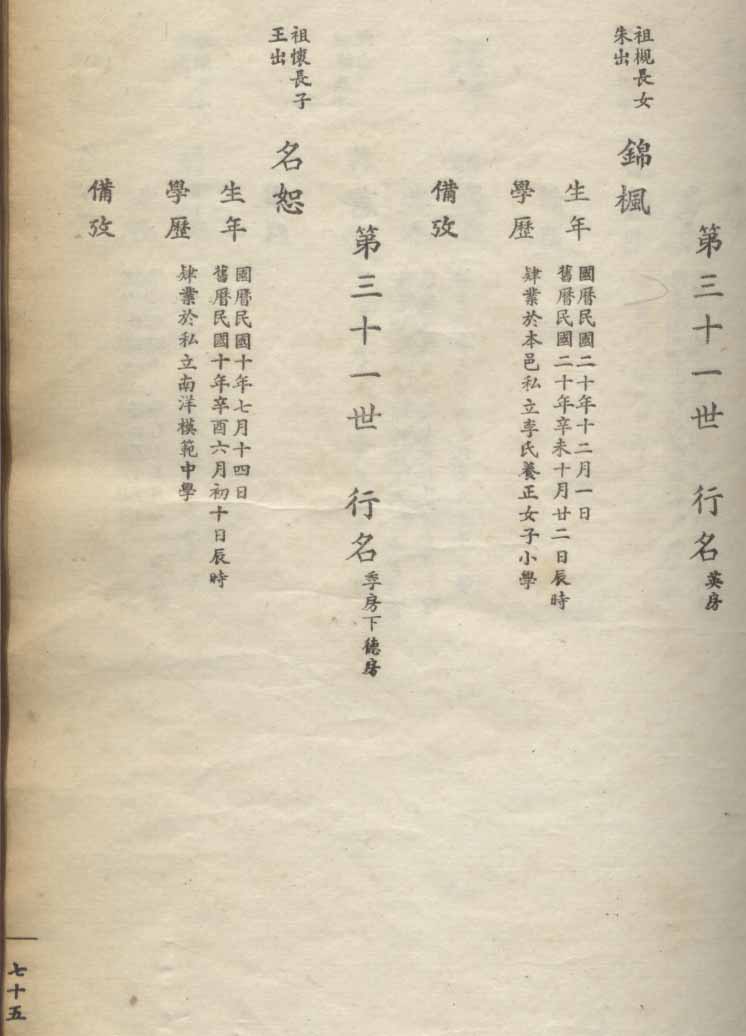 第三十一世 行名 英房
祖槻長女
朱出
錦楓
生年
國曆民國二十年十二月一日
舊曆民國二十年辛未十月廿二日辰時
學歷
肄業於本邑私立李氏養正女子小學
備攷
第三十一世 行名 季房下德房
祖懷長子
王出
名恕
生年
國曆民國十年七月十四日
舊曆民國十年辛酉六月初十日辰時
學歷
肄業於私立南洋模範中學
備攷
七十五